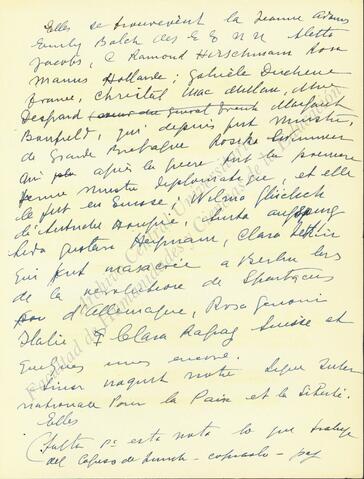 Elles se trouvevènt la Jeanne Adams
Emily Balch des E E N N Aletta
Jacobs, C Ramond Hirschmann Rosa
Manus Hollande; Gabrièle Duchene
France, Chrictal Mac millan, Mrs
Despard soeur du General French Margaret
Bonfield, qui depuis fut Ministre,
de Grande Bretagne Rosika Schwimmer
qui apres la guerre fut la premiere
femme ministre diplomatique, et elle
le fut en Suisse; Wilma Glücklich
d'Autriche Hongrie; Anita augspurg
Lida Gustava Heymann, Clara Zetkin
qui fut masacrée a Berlin lors
de la révolution de Spartacus
d'Allemagne, Rosa Genoni
Italie, Clara Ragaz Suisse et
quelques unes encore.
Ainsi naquit notre Ligue Inter
nationale Pour la Paix et la Liberté.
Elles
(Falta pª esta nota lo que trabaje
del Congreso de Zurich - copiarlo - pag
Archivo Central Universi
Facultad de Humanidades y Ciencias de la Educación